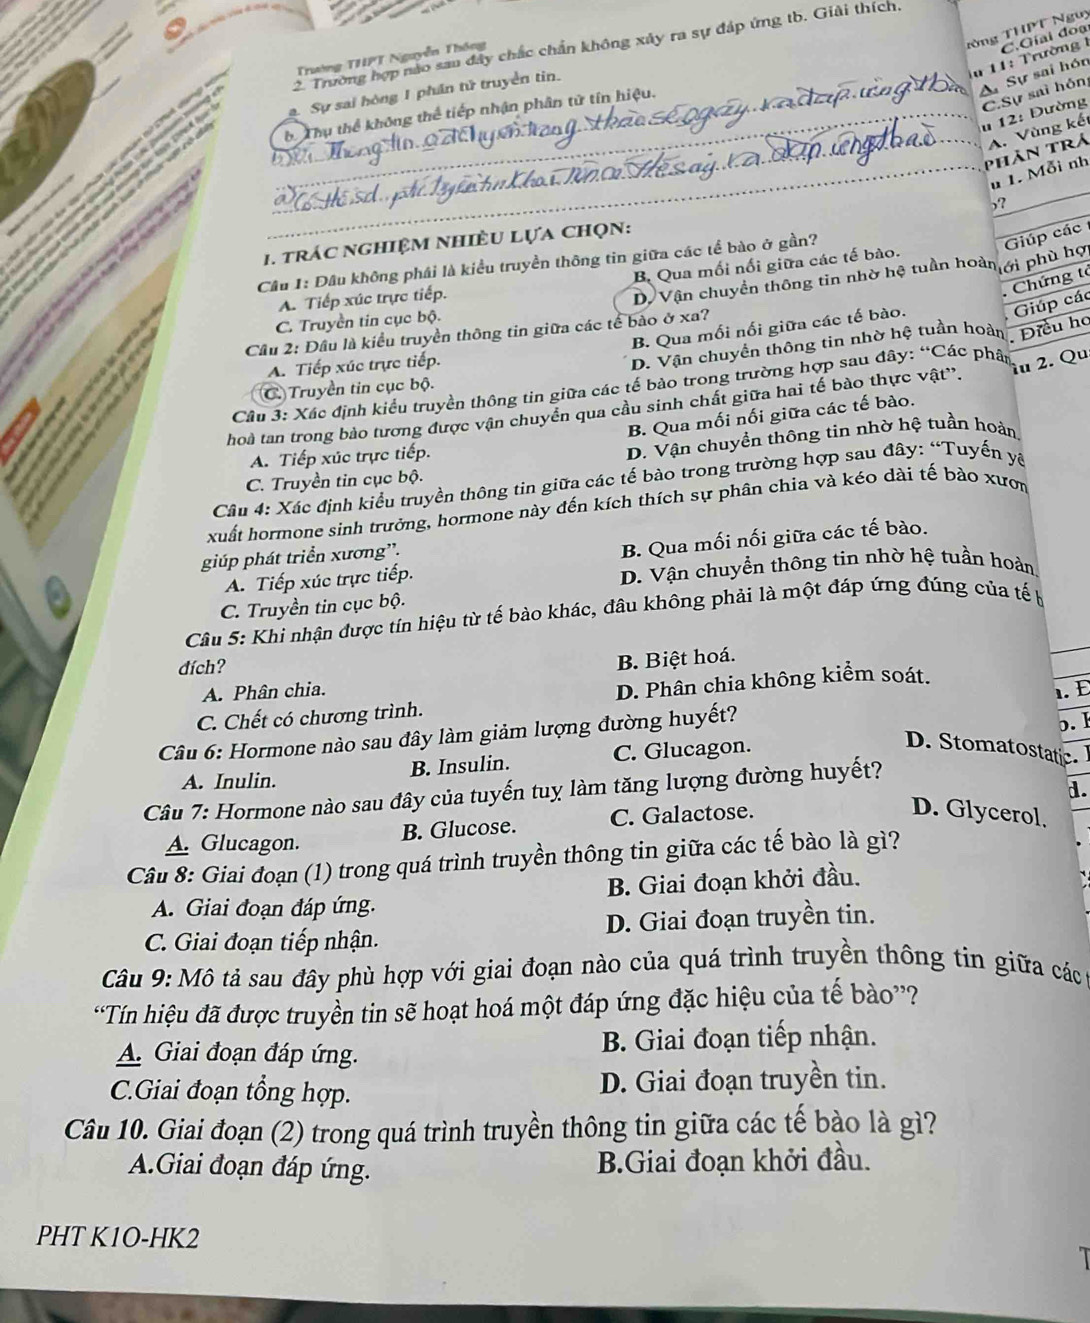 Trường THPT Nguyễn Thông
2. Trường hợp nào sau đây chắc chắn không xảy ra sự đáp ứng tb. Giải thích.
a. Sự sai hỏng 1 phân tử truyền tin.
b. Thụ thể không thể tiếp nhận phân tử tín hiệu.
I. TRẮC NGHIỆM NHIỀU LỰA CHỌN:
Câu 1: Đâu không phải là kiểu truyền thông tin giữa các tế bào ở gần?
A. Tiếp xúc trực tiếp.
B. Qua mối nối giữa các tế bào.
C. Truyền tin cục bộ.
D. Vận chuyển thông tin nhờ hệ tuần hoàn
Câu 2: Đâu là kiểu truyền thông tin giữa các tế bào ở xa?
A. Tiếp xúc trực tiếp.
B. Qua mối nối giữa các tế bào.
C. Truyền tin cục bộ.
D. Vận chuyển thông tin nhờ hệ tuần hoàn
Câu 3: Xác định kiểu truyền thông tin giữa các tế bào trong trường hợp sau đây: “Các phân
hoà tan trong bào tương được vận chuyển qua cầu sinh chất giữa hai tế bào thực vật”.
A. Tiếp xúc trực tiếp.
B. Qua mối nối giữa các tế bào.
C. Truyền tin cục bộ.
D. Vận chuyển thông tin nhờ hệ tuần hoàn
Câu 4: Xác định kiểu truyền thông tin giữa các tế bào trong trường hợp sau đây: “Tuyến yê
xuất hormone sinh trưởng, hormone này đến kích thích sự phân chia và kéo dài tế bào xươn
giúp phát triển xương”.
A. Tiếp xúc trực tiếp.
B. Qua mối nối giữa các tế bào.
C. Truyền tin cục bộ.
D. Vận chuyển thông tin nhờ hệ tuần hoàn.
Câu 5: Khi nhận được tín hiệu từ tế bào khác, đâu không phải là một đáp ứng đúng của tế b
đích?
A. Phân chia.
B. Biệt hoá.
C. Chết có chương trình.
D. Phân chia không kiểm soát.
Câu 6: Hormone nào sau đây làm giảm lượng đường huyết?
A. Inulin.
B. Insulin.
C. Glucagon.
D. Stomatostatic.
Câu 7: Hormone nào sau đây của tuyến tuỵ làm tăng lượng đường huyết?
A. Glucagon.
B. Glucose.
C. Galactose.
D. Glycerol.
Câu 8: Giai đoạn (1) trong quá trình truyền thông tin giữa các tế bào là gì?
A. Giai đoạn đáp ứng.
B. Giai đoạn khởi đầu.
C. Giai đoạn tiếp nhận.
D. Giai đoạn truyền tin.
Câu 9: Mô tả sau đây phù hợp với giai đoạn nào của quá trình truyền thông tin giữa các t
“Tín hiệu đã được truyền tin sẽ hoạt hoá một đáp ứng đặc hiệu của tế bào”?
A. Giai đoạn đáp ứng.
B. Giai đoạn tiếp nhận.
C.Giai đoạn tổng hợp.
D. Giai đoạn truyền tin.
Câu 10. Giai đoạn (2) trong quá trình truyền thông tin giữa các tế bào là gì?
A.Giai đoạn đáp ứng.
B.Giai đoạn khởi đầu.
PHT K1O-HK2
ường THPT Nguy
C.Giai đoạ
u 11: Trường
A. Sự sai hỏn
C.Sự sai hỏn
u 12: Đường
A. Vùng kế
PHẦN TRẢ
u 1. Mỗi nh
Giúp các
ới phù hợ
. Chứng tỏ
Giúp các
. Điều ho
u 2. Qu